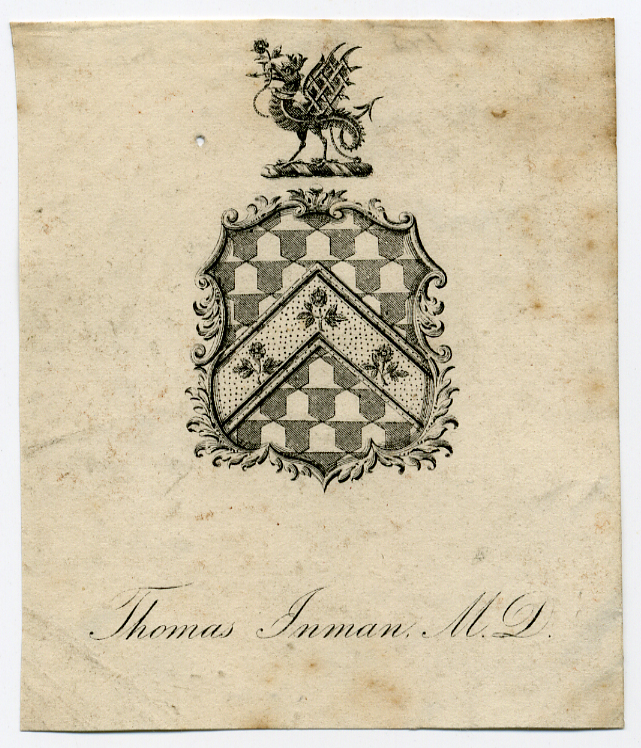 Thomas Inman. M.D.